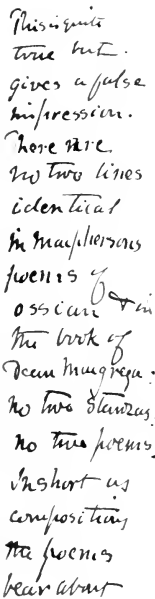 This is quite
true but.
gives a false
impression.
There are
no two lines
identical
in Macphersons
poems of
ossian & in
the book of
Dean Macgregor:
no two stanzas
no two poems,
In short as
compositions
the poems
bear about